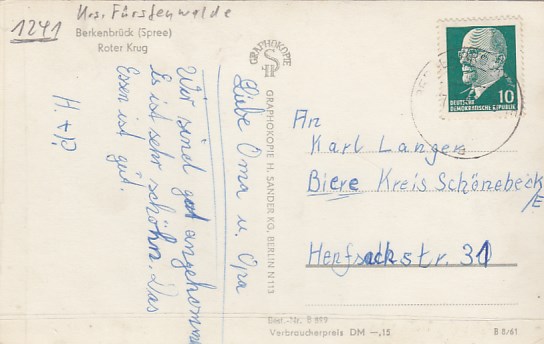 1241 Krs. Fürstenwalde
Berkenbrück (Spree)
Roter Krug
Liebe Oma u. Opa
Wir sind gut angekommen
Es ist sehr schöhn. Das
Essen ist gut.
H. + P.
GRAPHOKOPIE
GRAPHOKOPIE H. SANDER KG, BERLIN N 113
DEUTSCHE
DEMOKRATISCHE REPUBLIK
10
An
Karl Langer
Biere Kreis Schönebeck
/E
31
Best.-Nr. B 899
Verbraucherpreis DM —,15
B 8/61